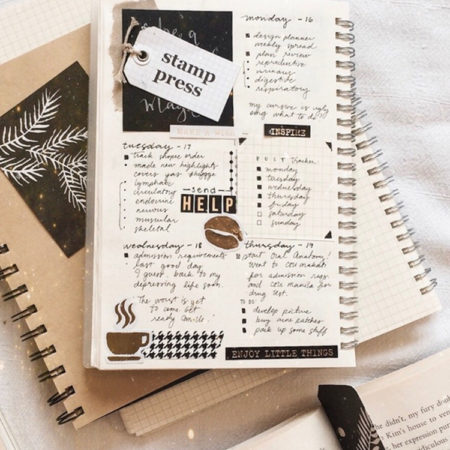 stamp
press
monday - 16
design planner
weekly spread
plan review
reproductive
urinous
digestive
respiratory
my cursive is ugly
omg what to do
MAKE A WISH
INSPIRE
tuesday - 17
track shopee order
made new highlights
covers
lymphatic
circulatory
endocrine
nervous
muscular
skeletal
send
HELP
tracker
monday
tuesday
wednesday
thursday
friday
saturday
sunday
wednesday - 18
admission requirements
last good day
I guess back to my
depressing life soon
"The worst is yet
to come get
ready
thursday - 19
start Oral Anatomy!
went to ceu makati
for admission reqs
and ceu manila for
drug test.
TO DO
develop picture
buy nine catches
pack up some stuff
ENJOY LITTLE THINGS
she didn't, my fury
Kim's house to
her expression